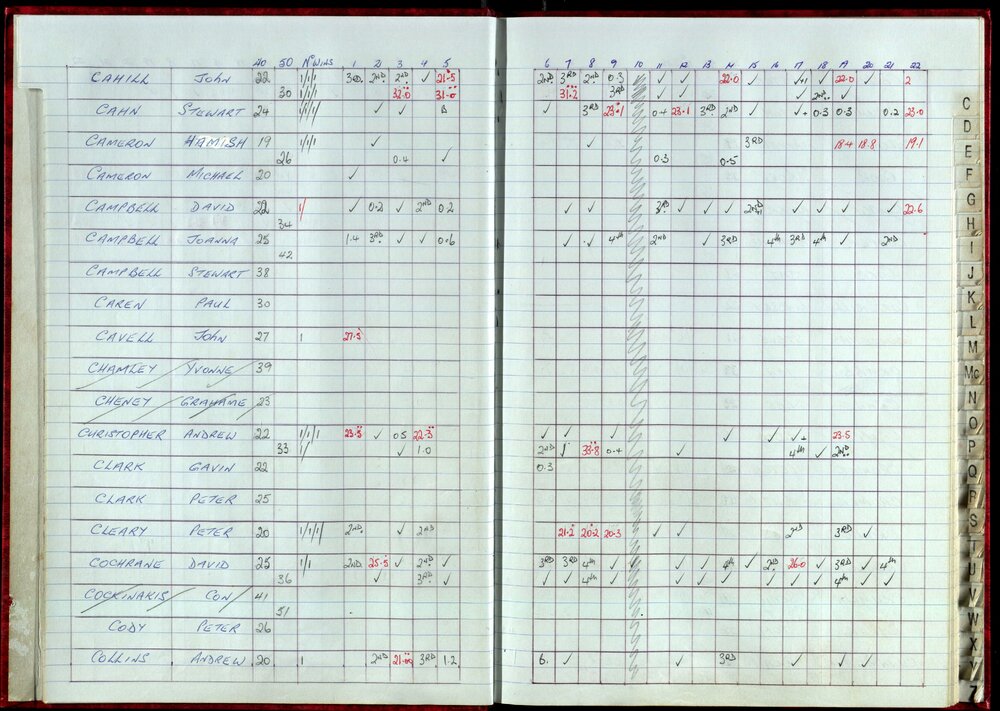 40 50 Nº WINS 1 2 3 4 5 6 7 8 9 10 11 12 13 14 15 16 17 18 19 20 21 22
CAHILL JOHN 22 3RD 2ND 2ND ✓ 21.5 2ND 3RD 2ND 0.3 ✓ ✓ 22.0 ✓ ✓+1 ✓ 22.0 ✓ 2
30 32.0 31.0 31.2 3RD ✓ ✓ ✓ 2ND ✓
CAHN STEWART 24 ✓ ✓ ✓ 3RD 23.1 0.4 23.1 3RD 2ND ✓ ✓+ 0.3 0.3 0.2 23.0
CAMERON HAMISH 19 ✓ ✓ 3RD 18.4 18.8 19.1
26 0.4 ✓ 0.3 0.5
CAMERON MICHAEL 20 ✓
CAMPBELL DAVID 22 ✓ 0.2 ✓ 2ND 0.2 ✓ ✓ 3RD ✓ ✓ ✓ ✓ ✓ ✓ ✓ 22.6
34
CAMPBELL JOANNA 25 1.4 3RD ✓ ✓ 0.6 ✓ ✓ 4th 2ND ✓ 3RD 4th 3RD 4th ✓ 2ND
42
CAMPBELL STEWART 38
CAREN PAUL 30
CAVELL JOHN 27 1 27.5
CHAMLEY YVONNE 39
CHENEY GRAHAME 23
CHRISTOPHER ANDREW 22 23.5 ✓ 0.5 22.3 ✓ ✓ ✓ ✓ ✓ ✓+ 23.5
33 ✓ 1.0 2ND 33.8 0.4 ✓ 4th ✓ 2ND
CLARK GAVIN 22 0.3
CLARK PETER 25
CLEARY PETER 20 2ND ✓ 2ND 21.2 20.2 20.3 ✓ ✓ 2ND 3RD ✓
COCHRANE DAVID 25 2ND 25.5 ✓ 2ND ✓ 3RD 3RD 4th ✓ ✓ ✓ ✓ 4th ✓ 2ND 26.0 ✓ 3RD ✓ 4th
36 ✓ 3RD ✓ ✓ ✓ 4th ✓ ✓ ✓ ✓ ✓ ✓ ✓ ✓ 4th ✓ ✓
COCKINAKIS CON 41
51
CODY PETER 26
COLLINS ANDREW 20 1 2ND 21.00 3RD 1.2 6. ✓ ✓ 3RD ✓ ✓ ✓
C
D
E
F
G
H
I
J
K
L
M
Mc
N
O
P
Q
R
S
T
U
V
W
X
Y
Z